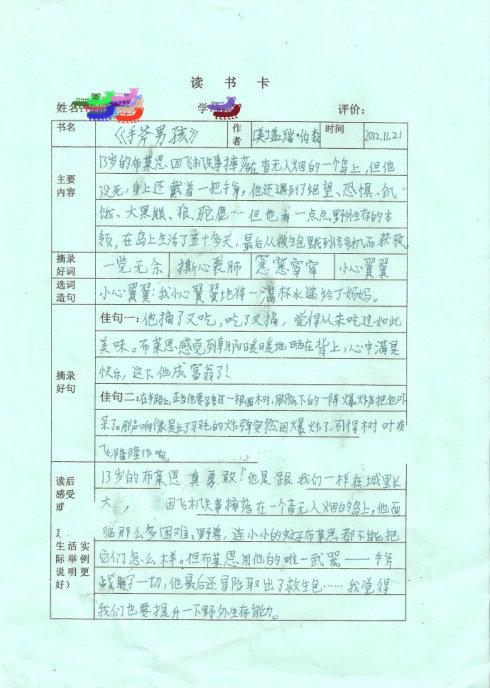 读 书 卡
姓名: 学 评价:
书名 《手斧男孩》 作者 [美]盖瑞·伯森 时间 2012.11.21
主要内容
13岁的布莱恩因飞机失事摔落在荒无人烟的一个岛上,但他
没死,身上还戴着一把手斧,他还遇到了绝望、恐惧、饥
饿、大黑熊、狼、驼鹿…但他有一点点野外生存的本
领,在岛上生活了五十多天,最后从救生包取到信号机而获救
摘录好词 一览无余 撕心裂肺 窸窸窣窣 小心翼翼
选词造句 小心翼翼:我小心翼翼地将一满杯水递给了妈妈。
摘录好句
佳句一:他摘了又吃,吃了又摘,觉得从来吃过如此
美味。布莱恩感觉到朝阳暖暖地晒在背上,心中满是
快乐,这下他成富翁了!
佳句二:在半路上,正当他要 这一根圆木时,脚底下的一阵爆炸声把他吓
呆了。那响像是长了羽毛的炸弹突然间爆炸了,引得树叶夜
飞隆隆作响。
读后感受或
(生活实际举例说明更好)
13岁的布莱恩真勇敢!他是跟我们一样在城里长
大, 因飞机失事摔落在一个荒无人烟的岛上,他面
临那么多困难、野兽,连小小的蚊子布莱恩都不能把
它们怎么样。但布莱恩用他的唯一武器——手斧
战胜了一切,他最后还冒险取出了救生包……我觉得
我们也要提升一下野外生存能力。